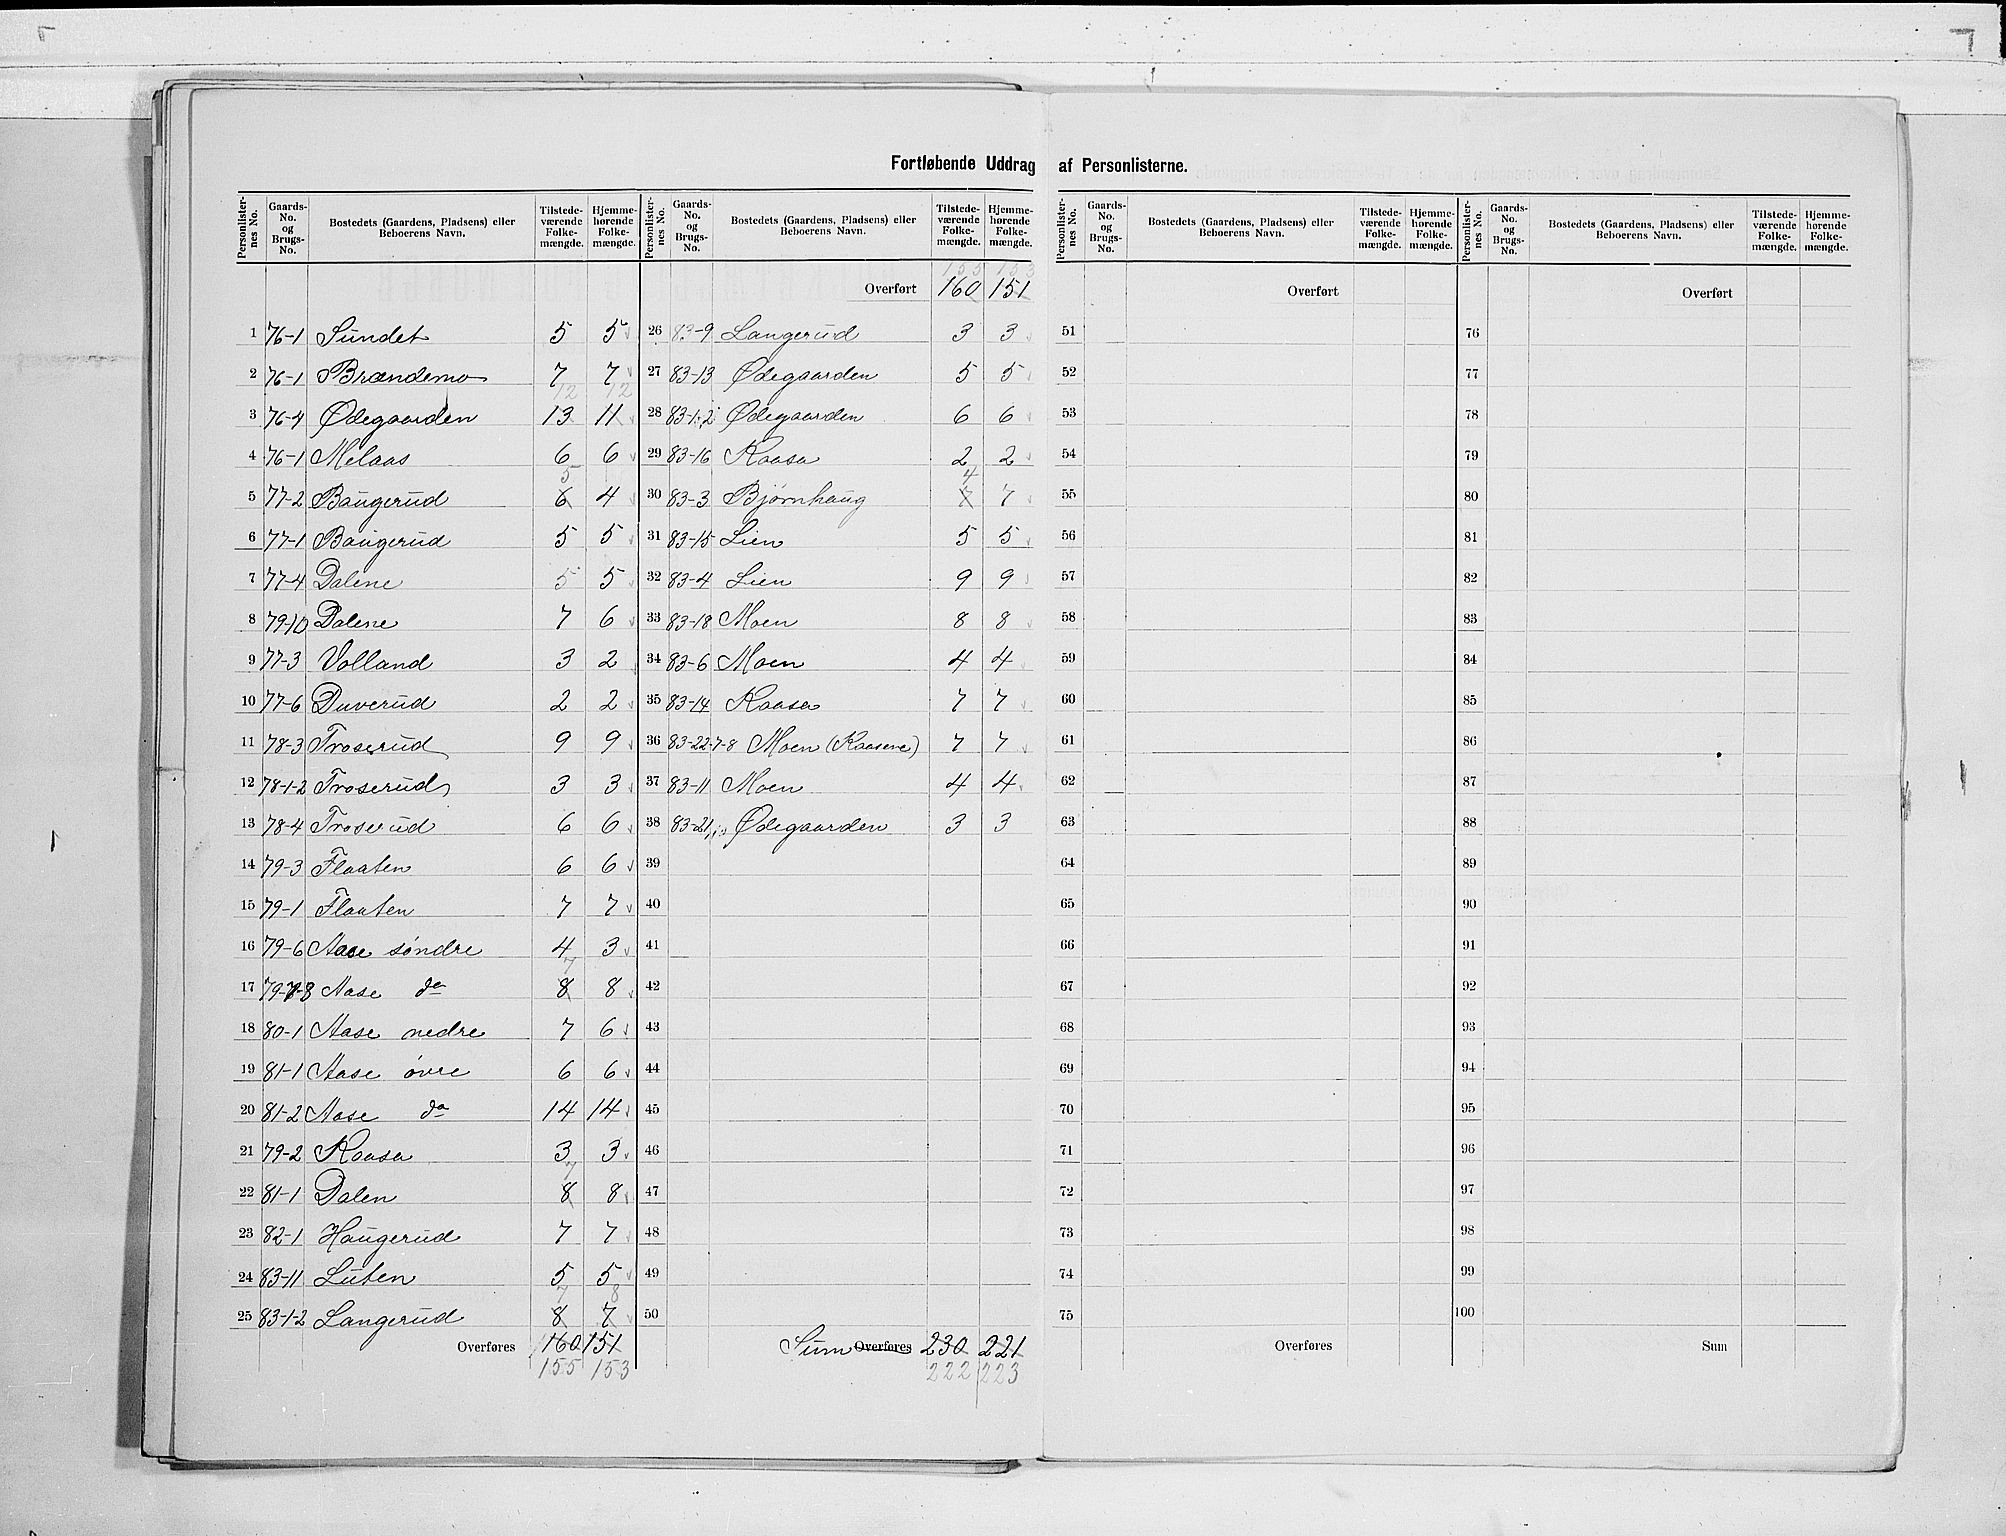 Fortløbende Uddrag af Personlisterne.
Personlister-nes No. Gaards-No. og Brugs-No. Bostedets (Gaardens, Pladsens) eller Beboerens Navn. Tilstede-værende Folke-mængde. Hjemme-hørende Folke-mængde.
1 76-1 Sundet 5 5
2 76-1 Brændemo 7 7
12 12
3 76-4 Ødegaarden 13 11
4 76-1 Melaas 6 6
5
5 77-2 Baugerud 6 4
6 77-1 Baugerud 5 5
7 77-4 Dalene 5 5
8 79-10 Dalene 7 6
9 77-3 Volland 3 2
10 77-6 Duverud 2 2
11 78-3 Troserud 9 9
12 78-1-2 Troserud 3 3
13 78-4 Troserud 6 6
14 79-3 Flaaten 6 6
15 79-1 Flaaten 7 7
16 79-6 Aase søndre 4 3
7
17 79-7-8 Aase do 8 8
18 80-1 Aase nedre 7 6
19 81-1 Aase øvre 6 6
20 81-2 Aase do 14 14
21 79-2 Kaasa 3 3
7
22 81-1 Dalen 8 8
23 82-1 Haugerud 7 7
24 83-11 Luten 5 5
7 8
25 83-1-2 Langerud 8 7
Overføres 160 151
155 153
Personlister-nes No. Gaards-No. og Brugs-No. Bostedets (Gaardens, Pladsens) eller Beboerens Navn. Tilstede-værende Folke-mængde. Hjemme-hørende Folke-mængde.
155 153
Overført 160 151
26 83-9 Langerud 3 3
27 83-13 Ødegaarden 5 5
28 83-1,2 Ødegaarden 6 6
29 83-16 Kaasa 2 2
4
30 83-3 Bjørnhaug 7 7
31 83-15 Lien 5 5
32 83-4 Lien 9 9
33 83-18 Moen 8 8
34 83-6 Moen 4 4
35 83-14 Kaasa 7 7
36 83-22-7-8 Moen (Kaasene) 7 7
37 83-11 Moen 4 4
38 83-21 Ødegaarden 3 3
39
40
41
42
43
44
45
46
47
48
49
50
Sum Overføres 230 221
222 223
Personlister-nes No. Gaards-No. og Brugs-No. Bostedets (Gaardens, Pladsens) eller Beboerens Navn. Tilstede-værende Folke-mængde. Hjemme-hørende Folke-mængde.
Overført
51
52
53
54
55
56
57
58
59
60
61
62
63
64
65
66
67
68
69
70
71
72
73
74
75
Overføres
Personlister-nes No. Gaards-No. og Brugs-No. Bostedets (Gaardens, Pladsens) eller Beboerens Navn. Tilstede-værende Folke-mængde. Hjemme-hørende Folke-mængde.
Overført
76
77
78
79
80
81
82
83
84
85
86
87
88
89
90
91
92
93
94
95
96
97
98
99
100
Sum